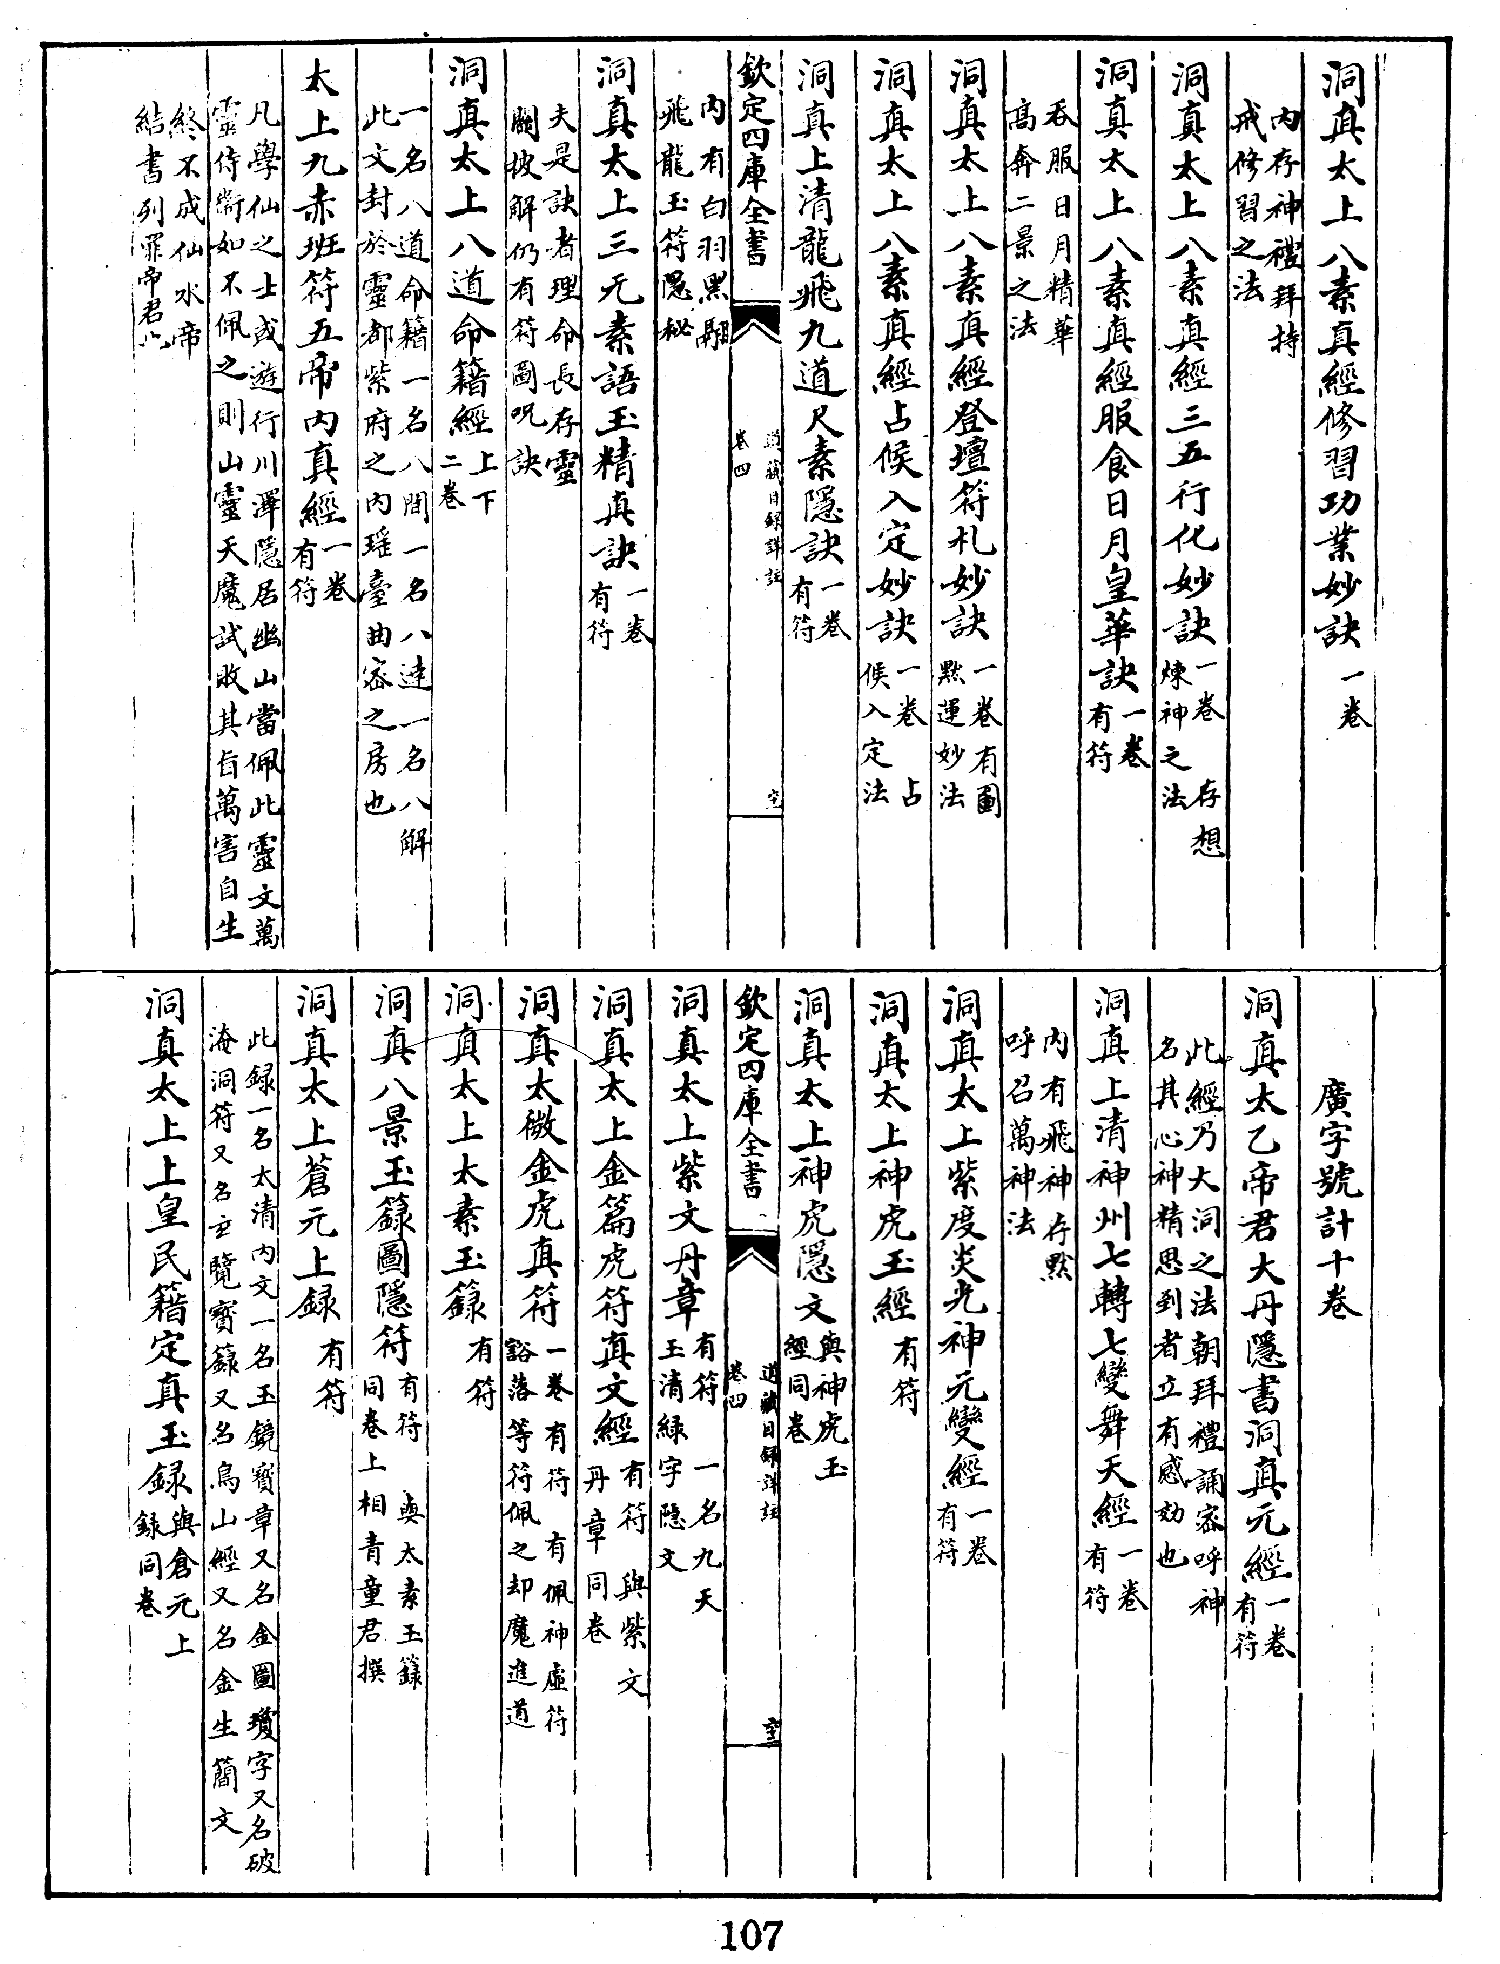 洞真太上八素真經修習功業妙訣一卷
內存神禮拜持
戒修習之法
洞真太上八素真經三五行化妙訣一卷 存想
煉神之法
洞真太上八素真經服食日月皇華訣一卷
有符
吞服日月精華
高奔二景之法
洞真太上八素真經登壇符札妙訣一卷有圖
默運妙法
洞真太上八素真經占候入定妙訣一卷 占
候入定法
洞真上清龍飛九道尺素隱訣一卷
有符
欽定四庫全書
道藏目錄詳註
卷四
內有白羽黑翮
飛龍玉符隱秘
洞真太上三元素語玉精真訣一卷
有符
夫是訣者理命長存靈
關披解仍有符圖呪訣
洞真太上八道命籍經上下
二卷
一名八道命籍一名八間一名八達一名八解
此文封於靈都紫府之內瑶臺曲密之房也
太上九赤班符五帝內真經一卷
有符
凡學仙之士或遊行川澤隱居幽山當佩此靈文萬
靈侍衛如不佩之則山靈天魔試敗其旨萬害自生
終不成仙水帝
結書列罪帝君也
廣字號計十卷
洞真太乙帝君大丹隱書洞真元經一卷
有符
此經乃大洞之法朝拜禮誦密呼神
名其心神精思到者立有感効也
洞真上清神州七轉七變舞天經一卷
有符
內有飛神存默
呼召萬神法
洞真太上紫度炎光神元變經一卷
有符
洞真太上神虎玉經有符
洞真太上神虎隱文與神虎玉
經同卷
欽定四庫全書
道藏目錄詳註
卷四
洞真太上紫文丹章有符 一名九天
玉清緑字隱文
洞真太上金篇虎符真文經有符 與紫文
丹章同卷
洞真太微金虎真符一卷有符 有佩神虛符
豁落等符佩之却魔進道
洞真太上太素玉籙有符
洞真八景玉籙圖隱符有符 與太素玉籙
同卷上相青童君撰
洞真太上蒼元上録有符
此録一名太清內文一名玉鏡寶章又名金圖瓊字又名破
淹洞符又名玄覽寶籙又名鳥山經又名金生簡文
洞真太上上皇民籍定真玉録與倉元上
録同卷
107